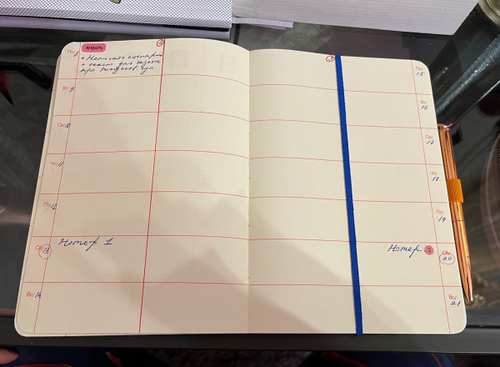 ЯНВАРЬ
Пн 8
• Написать
+ текст для
про
Вт 9
Ср 10
Чт 11
Пт 12
Сб 13 Номер 1
Вс 14
Пн 15
Вт 16
Ср 17
Чт 18
Пт 19
Номер 2 20
Вс 21